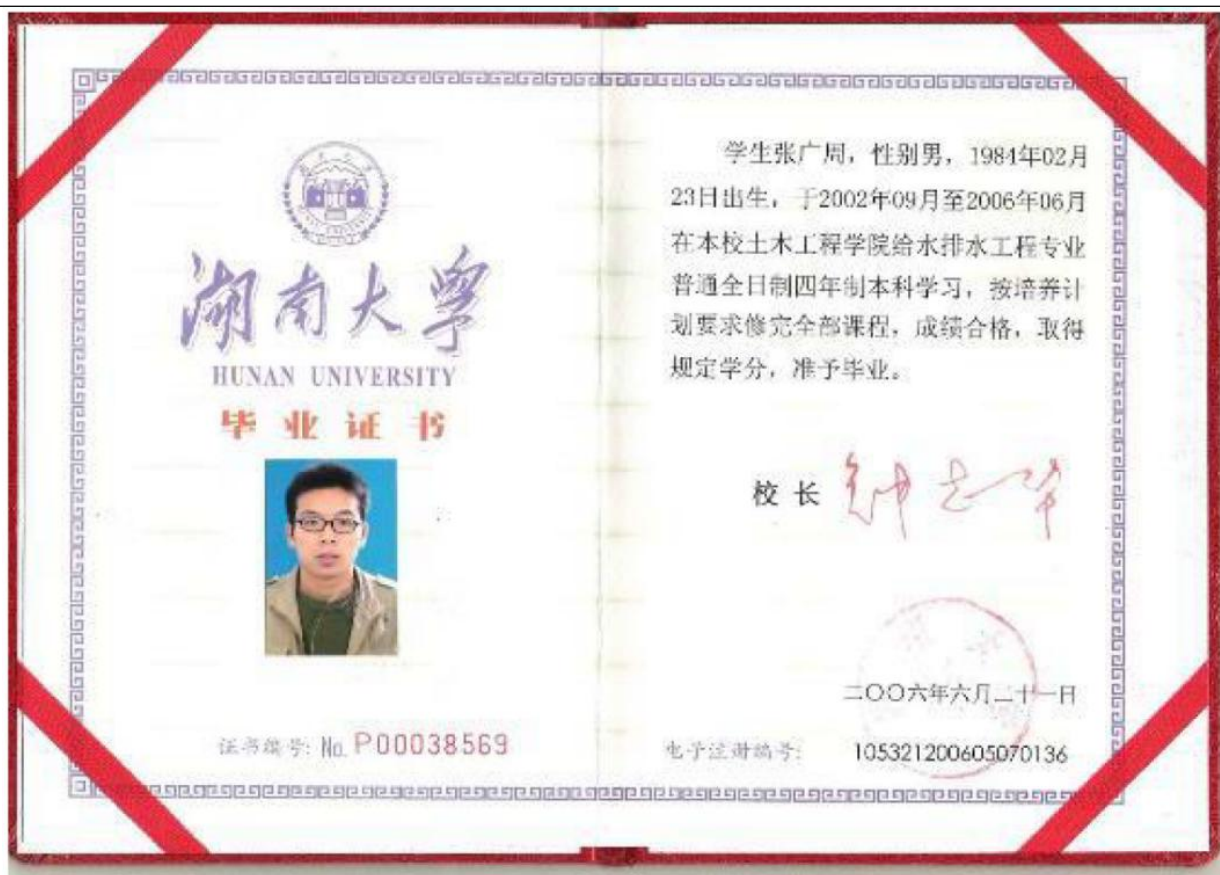 湖南大学
HUNAN UNIVERSITY
毕业证书
证书编号: No. P00038569
学生张广周，性别男，1984年02月
23日出生，于2002年09月至2006年06月
在本校土木工程学院给水排水工程专业
普通全日制四年制本科学习，按培养计
划要求修完全部课程，成绩合格，取得
规定学分，准予毕业。
校长 钟志华
二〇〇六年六月二十一日
电子注册编号: 105321200605070136